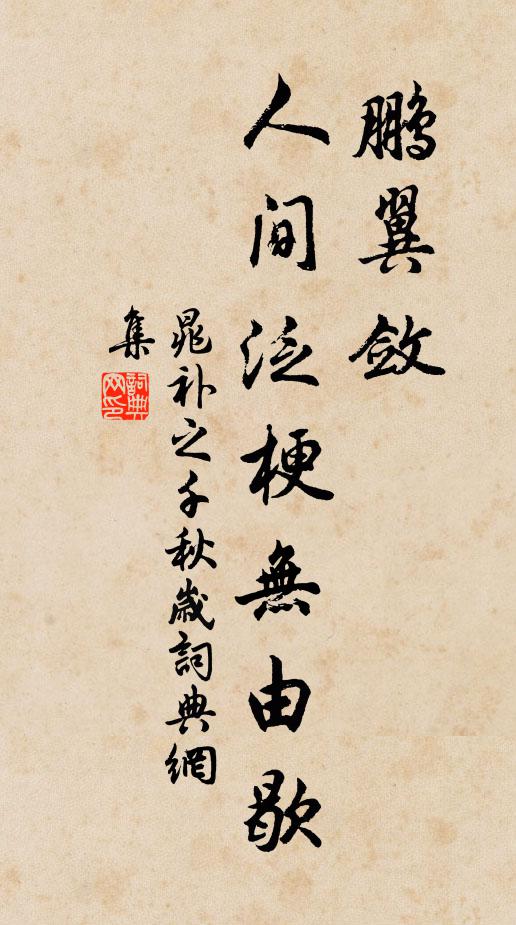 鹏翼敛
人间泛梗無由歇
晁补之千秋歲詞典網
集
詞典
网印